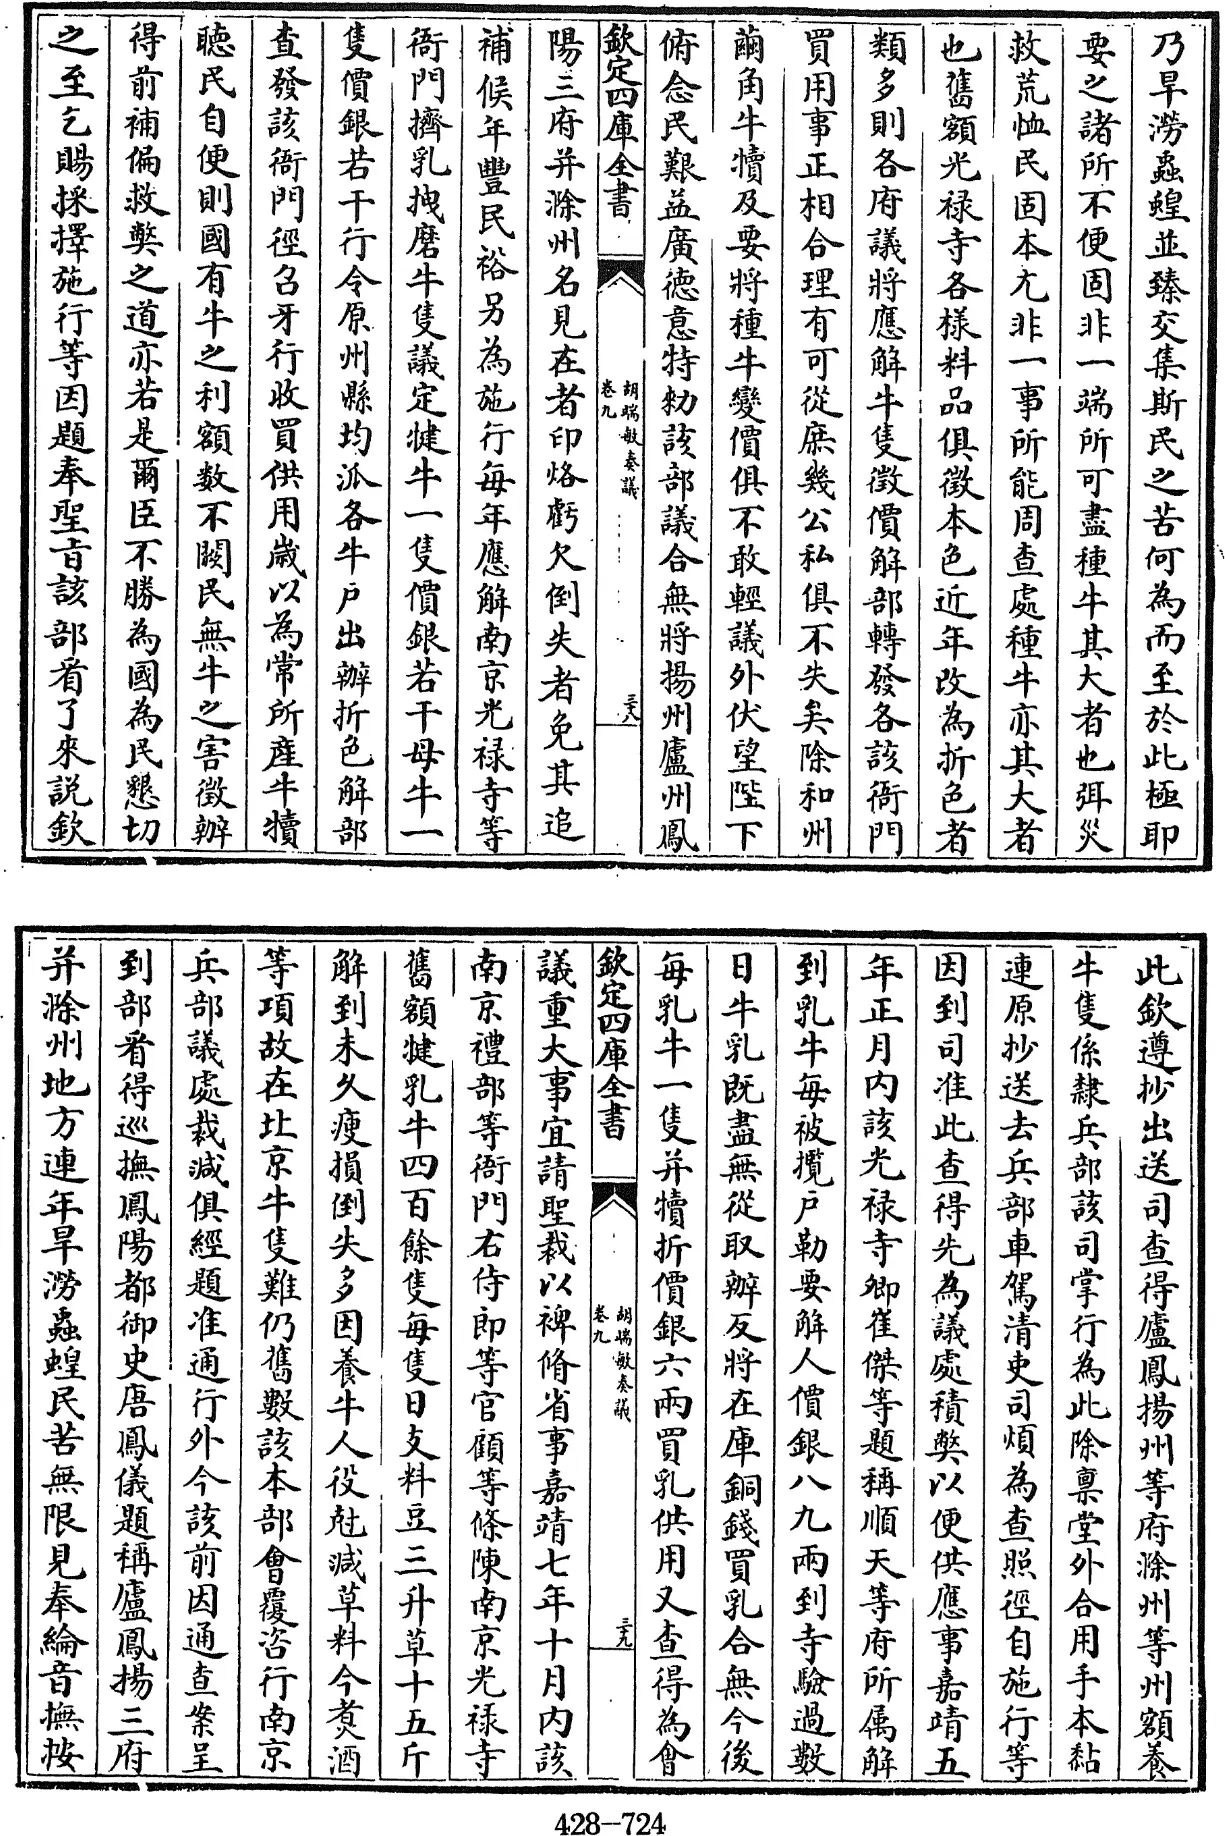 乃旱澇蟲蝗並臻交集斯民之苦何為而至於此極耶
要之諸所不便固非一端所可盡種牛其大者也弭災
救荒恤民固本尤非一事所能周查處種牛亦其大者
也舊額光禄寺各様料品俱徵本色近年改為折色者
類多則各府議將應解牛隻徵價解部轉發各該衙門
買用事正相合理有可從庶幾公私俱不失矣除和州
繭角牛犢及要將種牛變價俱不敢輕議外伏望陛下
俯念民艱益廣德意特勅該部議合無將揚州廬州鳳
欽定四庫全書
胡端敏奏議
卷九
三十八
陽三府并滁州名見在者印烙虧欠倒失者免其追
補候年豐民裕另為施行每年應解南京光禄寺等
衙門擠乳拽磨牛隻議定犍牛一隻價銀若干母牛一
隻價銀若干行令原州縣均派各牛户出辦折色解部
查發該衙門徑召牙行收買供用歳以為常所産牛犢
聽民自便則國有牛之利額數不闕民無牛之害徵辦
得前補偏救弊之道亦若是爾臣不勝為國為民懇切
之至乞賜採擇施行等因題奉聖旨該部看了來説欽
此欽遵抄出送司查得廬鳳揚州等府滁州等州額養
牛隻係隸兵部該司掌行為此除禀堂外合用手本黏
連原抄送去兵部車駕清吏司煩為查照徑自施行等
因到司准此查得先為議處積弊以便供應事嘉靖五
年正月内該光禄寺卿崔傑等題稱順天等府所屬解
到乳牛每被攬户勒要解人價銀八九兩到寺驗過數
日牛乳既盡無從取辦反將在庫銅錢買乳合無今後
每乳牛一隻并犢折價銀六兩買乳供用又查得為會
欽定四庫全書
胡端敏奏議
卷九
三十九
議重大事宜請聖裁以裨脩省事嘉靖七年十月内該
南京禮部等衙門右侍郎等官顧等條陳南京光禄寺
舊額犍乳牛四百餘隻每隻日支料豆三升草十五斤
解到未久瘦損倒失多因養牛人役尅減草料今煑酒
等項故在北京牛隻難仍舊數該本部會覆咨行南京
兵部議處裁減俱經題准通行外今該前因通查案呈
到部看得巡撫鳳陽都御史唐鳳儀題稱廬鳳揚三府
并滁州地方連年旱澇蟲蝗民苦無限見奉綸音撫按
428-724